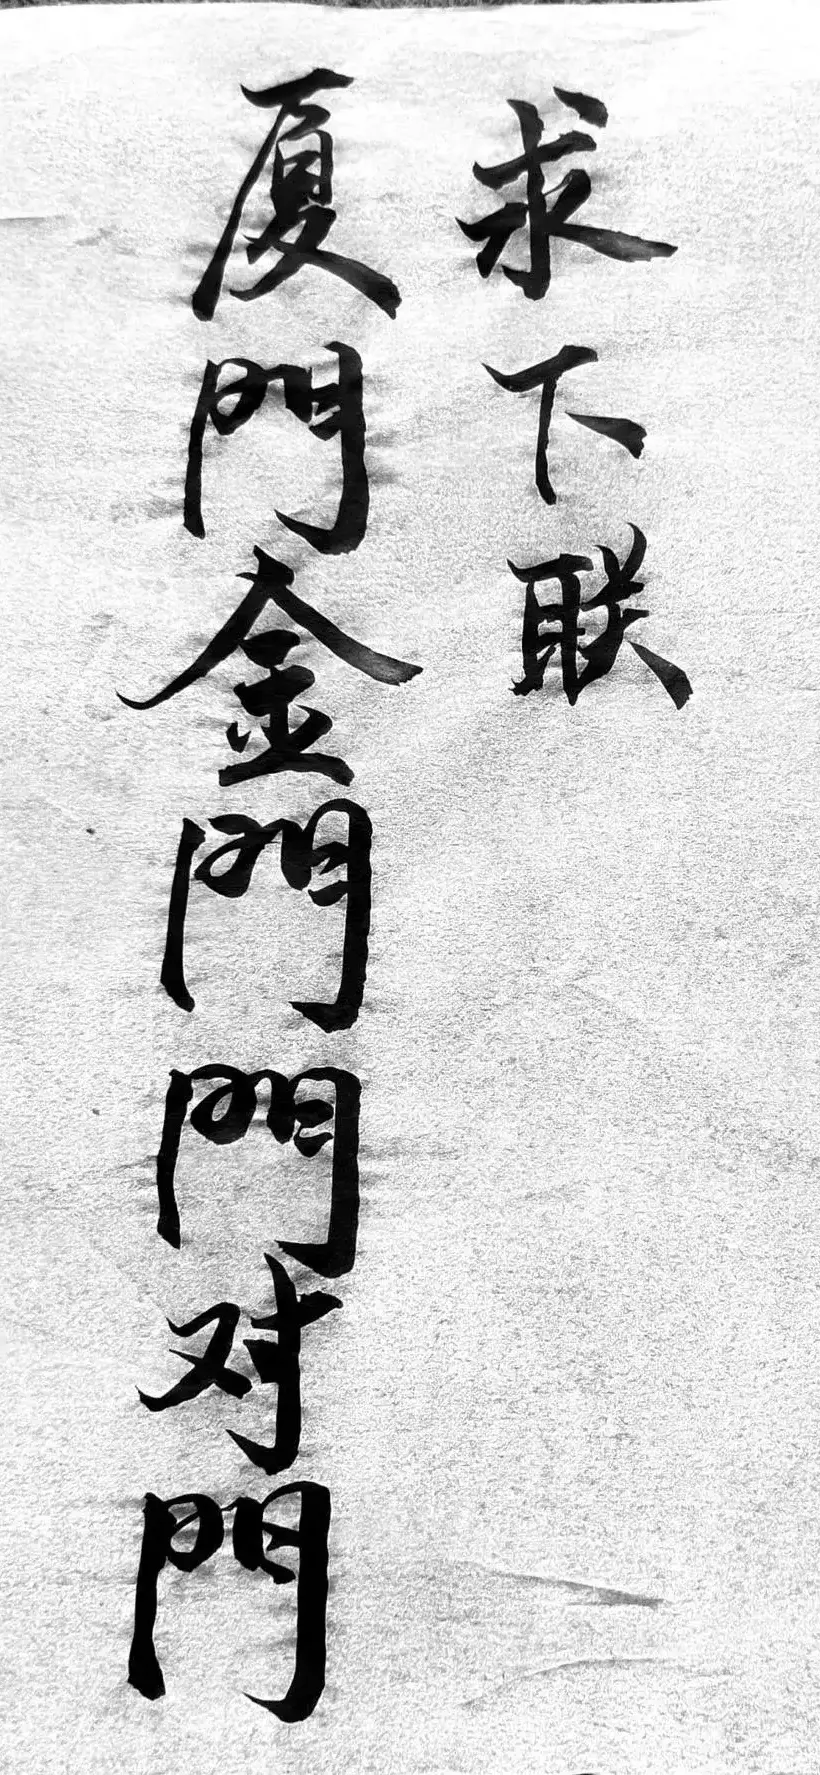 求下联
厦門金門門对門